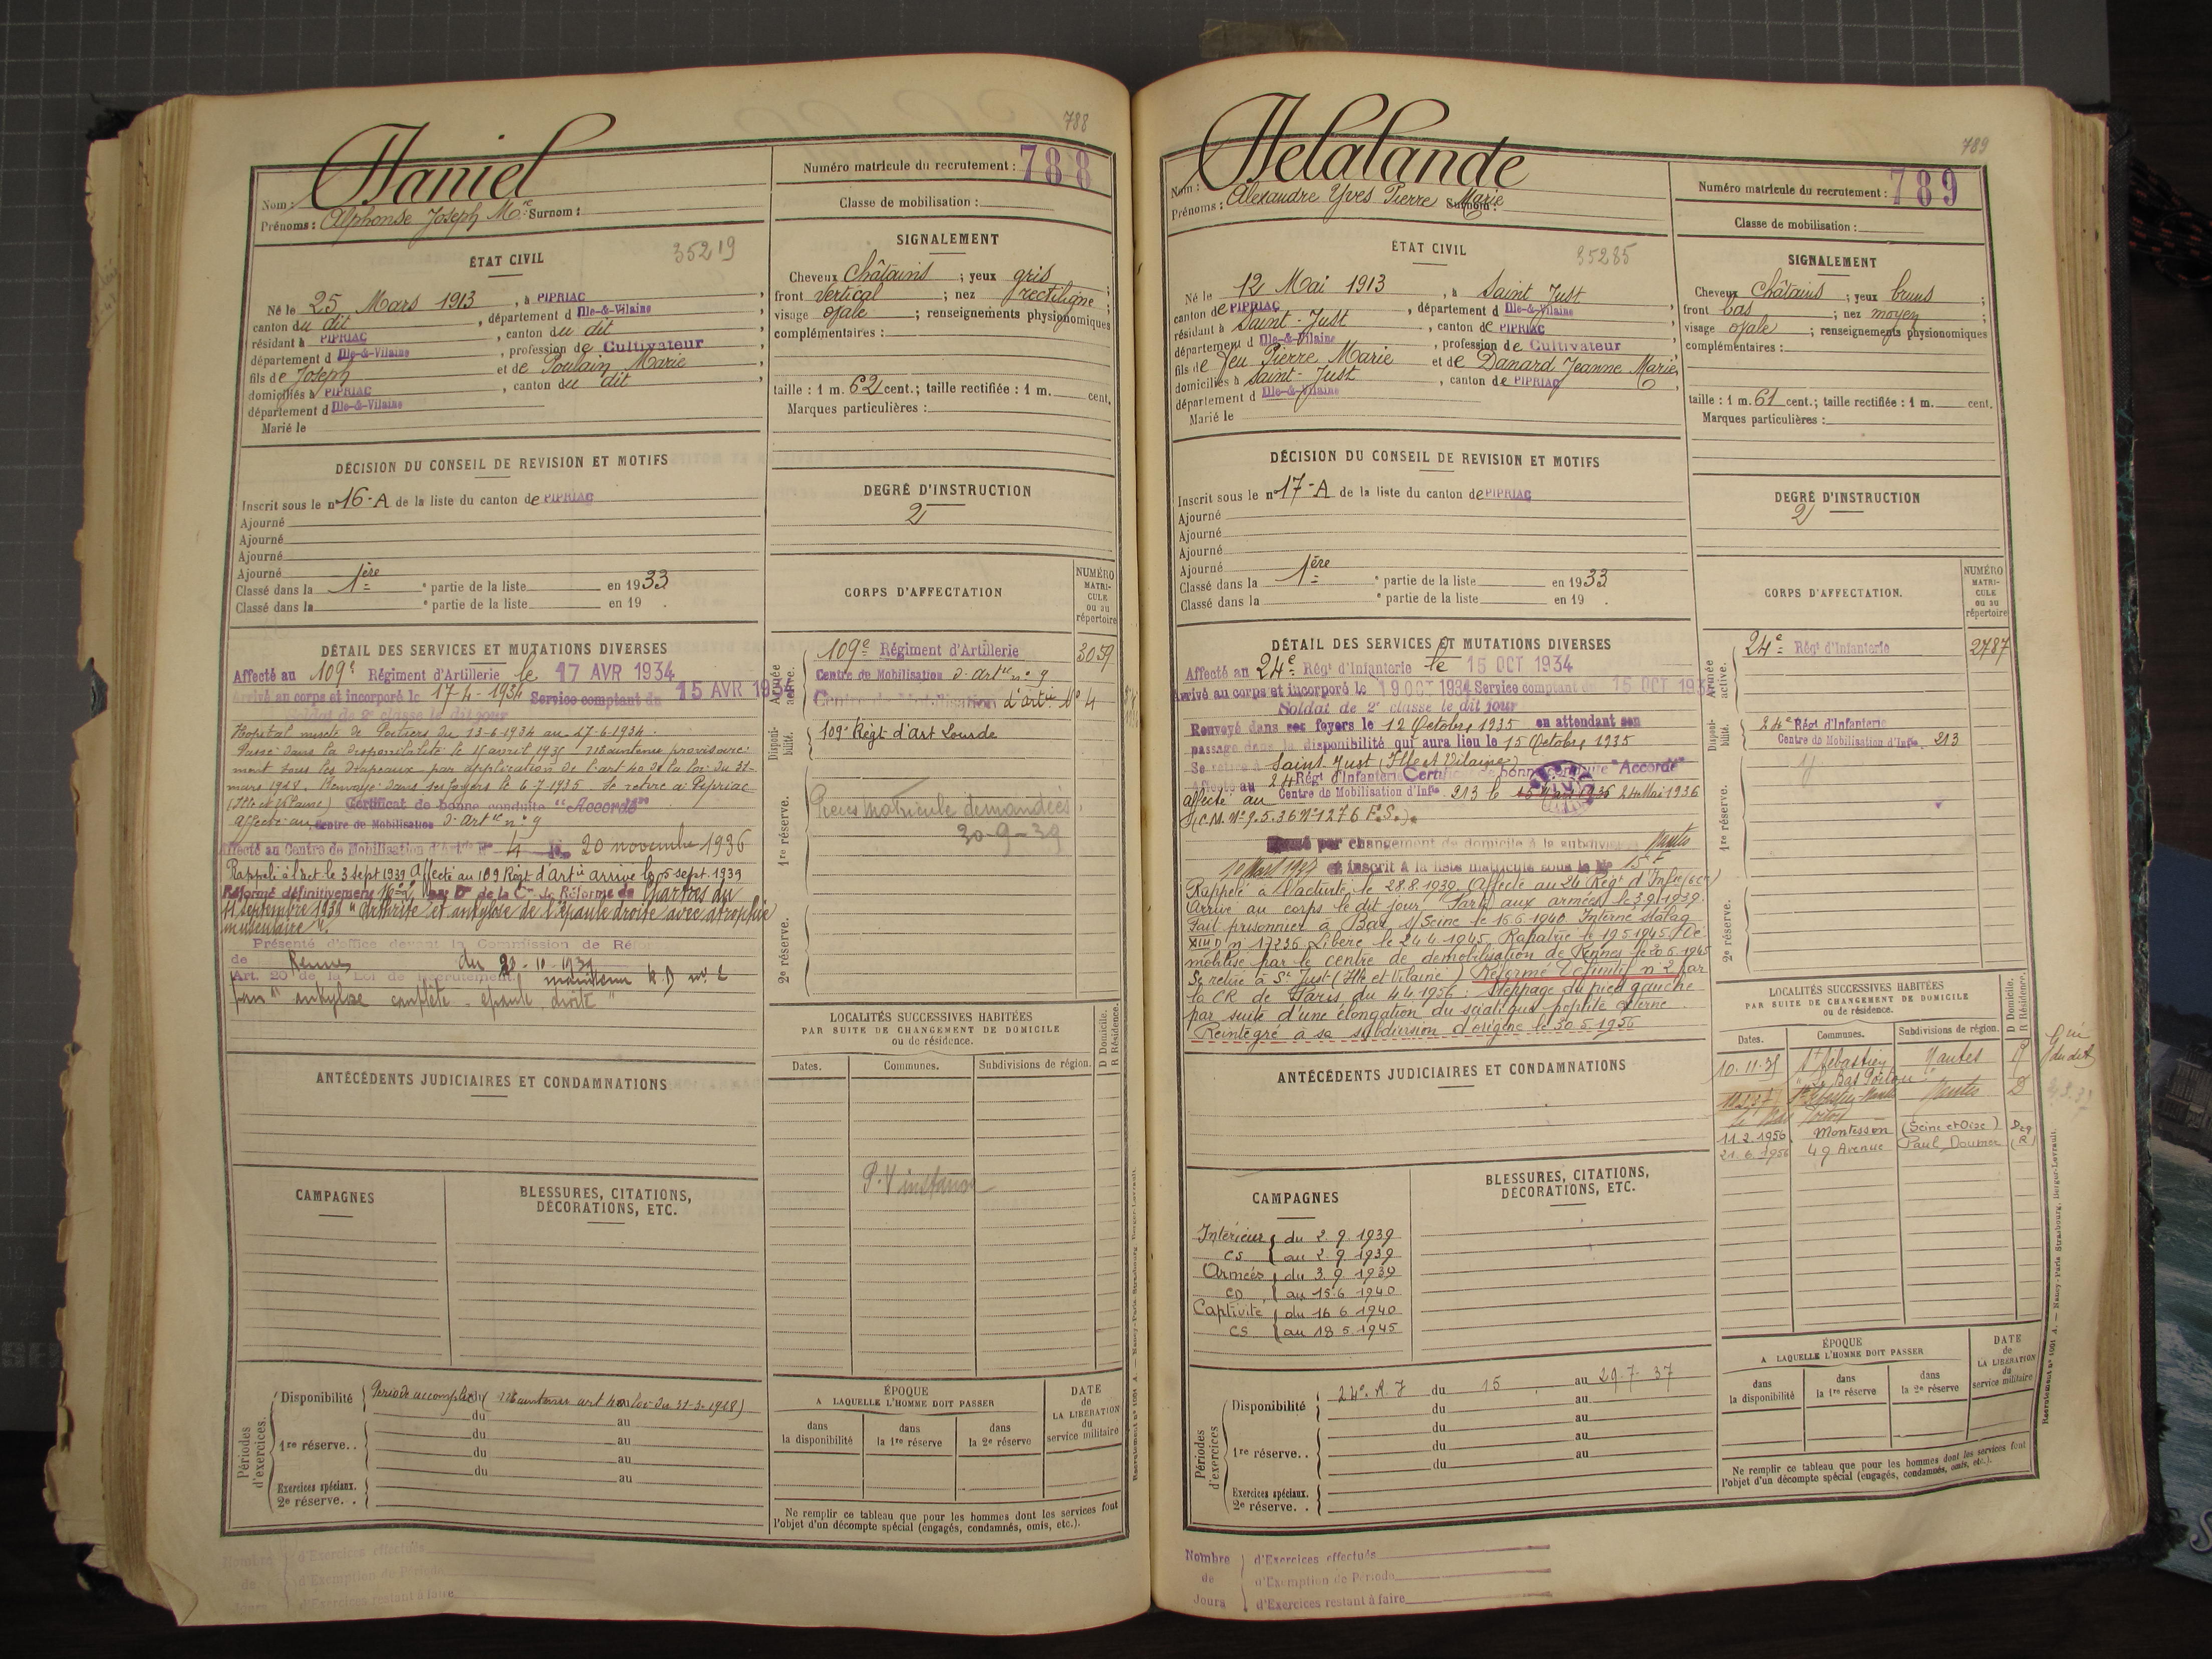 788
Daniel
Nom :
Prénoms : Alphonse Joseph Mie Surnom :
Numéro matricule du recrutement : 788
Classe de mobilisation :
ÉTAT CIVIL
35219
Né le 25 Mars 1913, à PIPRIAC,
canton du dit, département d Ille-&-Vilaine,
résidant à PIPRIAC, canton du dit,
département d Ille-&-Vilaine, profession de Cultivateur,
fils de Joseph et de Poulain Marie,
domiciliés à PIPRIAC, canton du dit,
département d Ille-&-Vilaine
Marié le
SIGNALEMENT
Cheveux Châtains ; yeux gris ;
front vertical ; nez rectiligne ;
visage ovale ; renseignements physionomiques
complémentaires :
taille : 1 m. 62 cent.; taille rectifiée : 1 m. cent.
Marques particulières :
DÉCISION DU CONSEIL DE REVISION ET MOTIFS
Inscrit sous le n° 16-A de la liste du canton de PIPRIAC
Ajourné
Ajourné
Ajourné
Ajourné
Classé dans la 1ère e partie de la liste en 1933
Classé dans la e partie de la liste en 19 .
DEGRÉ D'INSTRUCTION
2
CORPS D'AFFECTATION
NUMÉRO
MATRI-
CULE
ou au
répertoire
DÉTAIL DES SERVICES ET MUTATIONS DIVERSES
Affecté au 109e Régiment d'Artillerie le 17 AVR 1934
Arrivé au corps et incorporé le 17-4-1934 Service comptant du 15 AVR 1934
Soldat de 2e classe le dit jour
Hopital mixte de Poitiers du 13-6-1934 au 27-6-1934.
Passé dans la disponibilité le 15 avril 1935 Maintenu provisoire-
ment sous les drapeaux par application de l'art 40 de la loi du 31-
mars 1928. Renvoyé dans ses foyers le 6-7-1935 se retire à Pipriac
(Ille et Vilaine) Certificat de bonne conduite "Accordé"
Affecté au Centre de Mobilisation d'Artie n° 9
Affecté au Centre de Mobilisation d'Artie N° 4 le 20 novembre 1936
Rappelé à l'act le 3 sept 1939 Affecté au 109 Régt d'Artie arrivé le 5 sept. 1939
Réformé définitivement N° 2 par Don de la Con de Réforme de Chartres du
11 septembre 1939 "arthrite et ankylose de l'épaule droite avec atrophie
musculaire".
Présenté d'office devant la Commission de Réforme
de Rennes du 23-10-1939
Art. 20 de la Loi de Recrutement maintenu R.D n° 2
pour "ankylose complète épaule droite"
Armée
active.
109e Régiment d'Artillerie 3059
Centre de Mobilisation d'Artie n° 9
Centre de Mobilisation d'artie N° 4
Disponi-
bilité.
109e Régt d'Art Lourde
1re réserve.
Pièces matricule demandées
30-9-39
2e réserve.
LOCALITÉS SUCCESSIVES HABITÉES
PAR SUITE DE CHANGEMENT DE DOMICILE
ou de résidence.
D Domicile.
R Résidence.
Dates. Communes. Subdivisions de région.
P.V instance
ANTÉCÉDENTS JUDICIAIRES ET CONDAMNATIONS
CAMPAGNES
BLESSURES, CITATIONS,
DÉCORATIONS, ETC.
Périodes
d'exercices.
Disponibilité Période accomplie (Maintenu art 40 loi du 31-3-1928)
du au
1re réserve.. du au
du au
du au
Exercices spéciaux.
2e réserve. .
ÉPOQUE
A LAQUELLE L'HOMME DOIT PASSER
dans
la disponibilité
dans
la 1re réserve
dans
la 2e réserve
DATE
de
LA LIBÉRATION
du
service militaire
Ne remplir ce tableau que pour les hommes dont les services font
l'objet d'un décompte spécial (engagés, condamnés, omis, etc.).
Nombre
de
Jours
d'Exercices effectués
d'Exemption de Période
d'Exercices restant à faire
789
Delalande
Nom :
Prénoms : Alexandre Yves Pierre Marie Surnom :
Numéro matricule du recrutement : 789
Classe de mobilisation :
ÉTAT CIVIL
35285
Né le 12 Mai 1913, à Saint Just,
canton de PIPRIAC, département d Ille-&-Vilaine,
résidant à Saint-Just, canton de PIPRIAC,
département d Ille-&-Vilaine, profession de Cultivateur
fils de feu Pierre Marie et de Danard Jeanne Marie,
domiciliés à Saint-Just, canton de PIPRIAC
département d Ille-&-Vilaine
Marié le
SIGNALEMENT
Cheveux Châtains ; yeux bruns ;
front bas ; nez moyen ;
visage ovale ; renseignements physionomiques
complémentaires :
taille : 1 m. 61 cent.; taille rectifiée : 1 m. cent.
Marques particulières :
DÉCISION DU CONSEIL DE REVISION ET MOTIFS
Inscrit sous le n° 17-A de la liste du canton de PIPRIAC
Ajourné
Ajourné
Ajourné
Ajourné
Classé dans la 1ère e partie de la liste en 1933
Classé dans la e partie de la liste en 19 .
DEGRÉ D'INSTRUCTION
2
CORPS D'AFFECTATION.
NUMÉRO
MATRI-
CULE
ou au
répertoire
DÉTAIL DES SERVICES ET MUTATIONS DIVERSES
Affecté au 24e Régt d'Infanterie le 15 OCT 1934
Arrivé au corps et incorporé le 19 OCT 1934 Service comptant du 15 OCT 1934
Soldat de 2e classe le dit jour
Renvoyé dans ses foyers le 12 Octobre 1935 en attendant son
passage dans la disponibilité qui aura lieu le 15 Octobre 1935
Se retire à Saint Just (Ille et Vilaine)
Affecté au 24 Régt d'Infanterie Certificat de bonne conduite "Accordé"
affecté au Centre de Mobilisation d'Infie 213 le 24 Mai 1936
(C.M. N° 9.5.36 N° 1276 E.S.).
Passé par changement de domicile à la subdivision Nantes
10 Mars 1937 et inscrit à la liste matricule sous le N° 15 F
Rappelé à l'activité le 28.8.1939. Affecté au 24 Régt d'Infie
Arrivé au corps le dit jour Parti aux armées le 3.9.1939.
Fait prisonnier à Bar s/ Seine le 16.6.1940 Interné stalag
XIII D n° 17236 Libéré le 24.4.1945. Rapatrié le 19.5.1945 Dé-
mobilisé par le centre de démobilisation de Rennes le 20.6.1945
Se retire à St Just (Ille et Vilaine) Réformé Définitif n° 2 par
la CR de Paris du 4.4.1956 : Steppage du pied gauche
par suite d'une élongation du sciatique poplité externe
Réintégré à sa subdivision d'origine le 30.5.1956
Armée
active.
24e Régt d'Infanterie 2787
Disponi-
bilité.
24e Régt d'Infanterie
Centre de Mobilisation d'Infie 213
1re réserve.
2e réserve.
LOCALITÉS SUCCESSIVES HABITÉES
PAR SUITE DE CHANGEMENT DE DOMICILE
ou de résidence.
D Domicile.
R Résidence.
Dates. Communes. Subdivisions de région.
10.11.35 St Sébastien Nantes R
"Le Bas Poitou"
Nantes D
11.2.1956 Montesson (Seine et Oise)
21.6.1956 49 Avenue Paul Doumer (R)
ANTÉCÉDENTS JUDICIAIRES ET CONDAMNATIONS
CAMPAGNES
BLESSURES, CITATIONS,
DÉCORATIONS, ETC.
Intérieur du 2.9.1939
CS au 2.9.1939
Armées du 3.9.1939
CD au 15.6.1940
Captivité du 16.6.1940
CS au 18.5.1945
Périodes
d'exercices
Disponibilité 24e R.I du 15 au 29.7.37
du au
du au
1re réserve.. du au
du au
Exercices spéciaux.
2e réserve. .
ÉPOQUE
A LAQUELLE L'HOMME DOIT PASSER
dans
la disponibilité
dans
la 1re réserve
dans
la 2e réserve
DATE
de
LA LIBÉRATION
du
service militaire
Ne remplir ce tableau que pour les hommes dont les services font
l'objet d'un décompte spécial (engagés, condamnés, omis, etc.).
Nombre
de
Jours
d'Exercices effectués
d'Exemption de Période
d'Exercices restant à faire